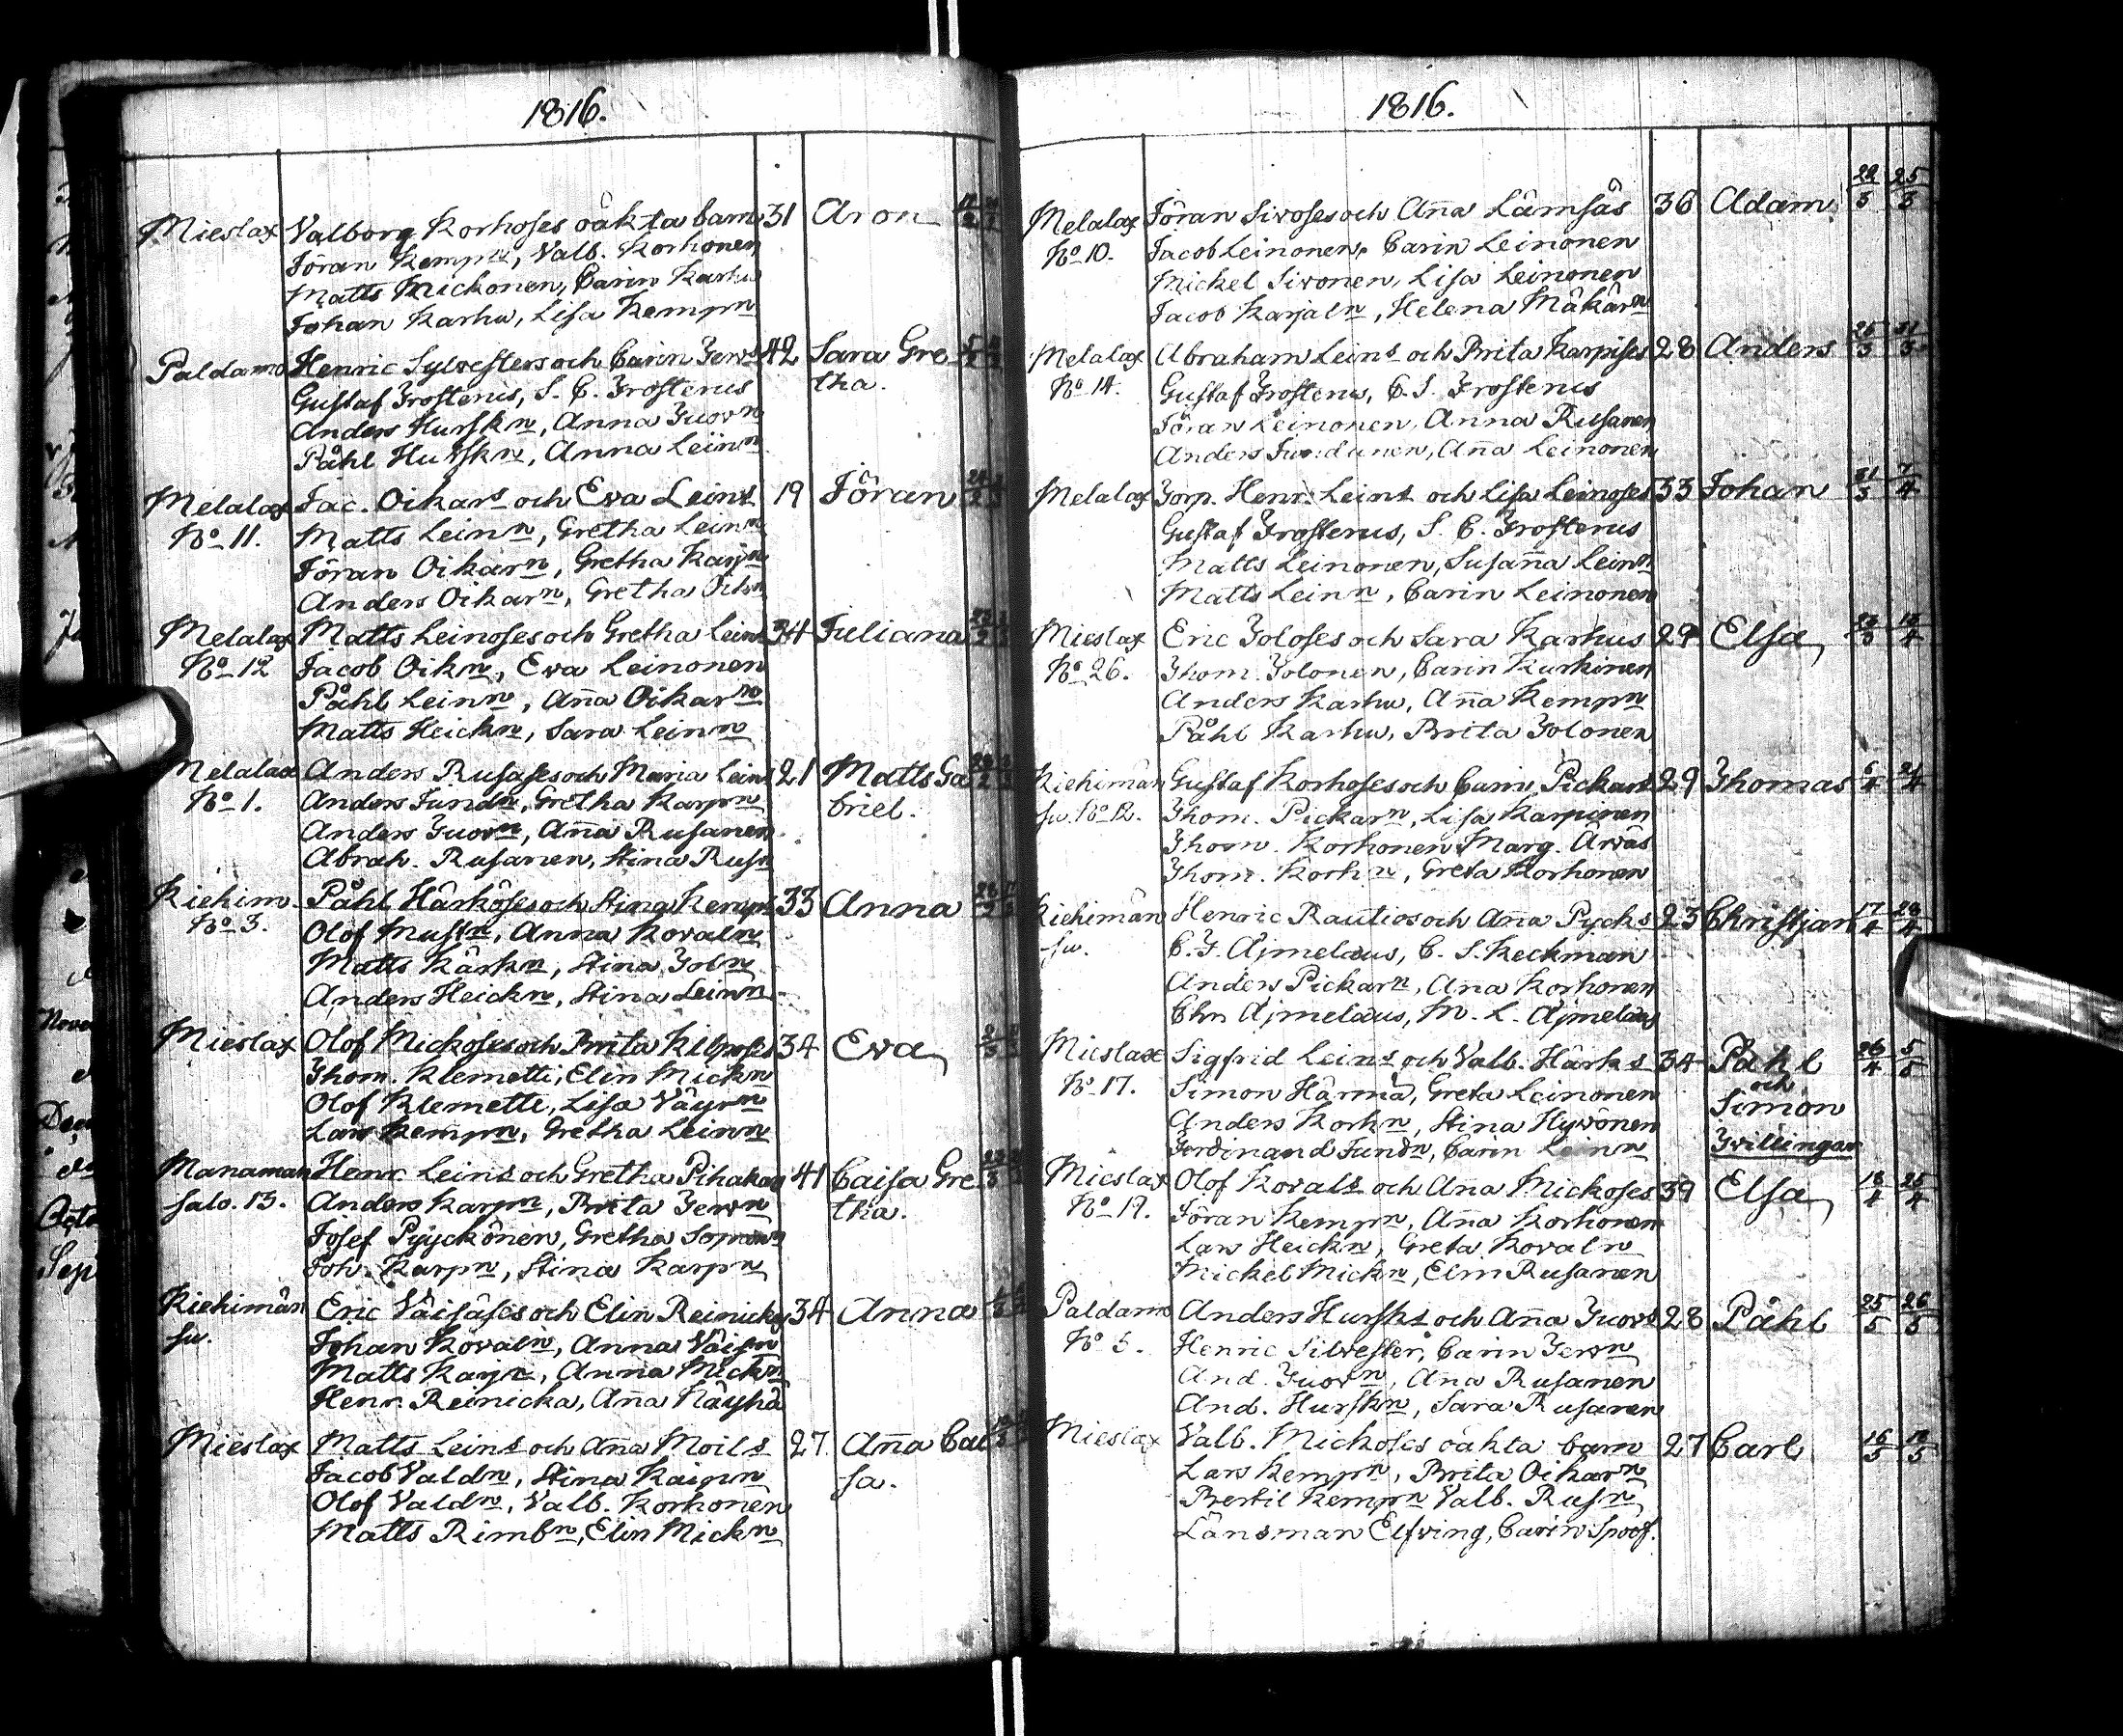 1816.
Mieslax Valborg Korhoses oäkta barn 31 Aron
Jöran Kempn, Valb. Korhonen
Matts Mickonen, Carin Karhu
Johan Karhu, Lisa Kempn
Paldamo Henric Sylvesters och Carin Jerv 42 Sara Gre 5/2
Gustaf Frosterus, S. C. Frosterus tha.
Anders Hurskn, Anna Juorn
Påhl Hurskn, Anna Leinn
Melalax Jac. Oikars och Eva Leins 19 Jöran
No 11. Matts Leinn, Gretha Leinn
Jöran Oikarn, Gretha Karjn
Anders Oikarn, Gretha
Melalax Matts Leinoses och Gretha Leins 34 Juliana
No 12 Jacob Oikn, Eva Leinonen
Påhl Leinn, Anna Oikarn
Matts Heickn, Sara Leinn
Melalax Anders Rusases och Maria Leins 21 Matts Ga
No 1. Anders Jundn, Gretha Karpn briel.
Anders Juorn, Anna Rusanen
Abrah. Rusanen, Stina Rusn
Kiehim. Påhl Härköses och Stina Kemps 33 Anna
No 3. Olof Mustn, Anna Kovaln
Matts Kärkn, Stina Toln
Anders Heickn, Stina Leinn
Mieslax Olof Mickoses och Brita 34 Eva
Thom. Klemetti, Elin Mickn
Olof Klemetti, Lisa Väyrn
Lars Kempn, Gretha Leinn
Manaman Henr. Leins och Gretha Pihakas 41 Caisa Gre
salo. 13. Anders Karpn, Brita Jervn tha.
Josef Pyyckönen, Gretha
Joh. Karpn, Stina Karpn
Kiehimän Eric Väisäses och Elin Reinickas 34 Anna
su. Johan Kovaln, Anna Väisn
Matts Karjn, Anna Mickn
Henr. Reinicka, Anna Käyhä
Mieslax Matts Leins och Anna Moils 27. Anna Cai
Jacob Valdn, Stina Kaipn sa.
Olof Valdn, Valb. Korhonen
Matts Rimbn, Elin Mickn
1816.
Melalax Jöran Sivoses och Anna Lämsäs 36 Adam 22/3 25/3
No 10. Jacob Leinonen, Carin Leinonen
Mickel Sivonen, Lisa Leinonen
Jacob Karjaln, Helena Mäkärn
Melalax Abraham Leins och Brita Karpises 28 Anders 25/3 31/3
No 14. Gustaf Frosterus, C. S. Frosterus
Jöran Leinonen, Anna Rusanen
Anders Jundunen, Anna Leinonen
Melalax Torp. Henr. Leins och Lisa Leinoses 33 Johan 31/3 7/4
Gustaf Frosterus, S. C. Frosterus
Matts Leinonen, Susanna Leinn
Matts Leinn, Carin Leinonen
Mieslax Eric Toloses och Sara Karhus 29 Elsa
No 26. Thom. Tolonen, Carin Kurkinen
Anders Karhu, Anna Kempn
Påhl Karhu, Brita Tolonen
Kiehimän Gustaf Korhoses och Carin Pickars 29 Thomas
su. No 12. Thom. Pickarn, Lisa Karpinen
Thom. Korhonen Marg. Arvås
Thom. Korhn, Greta Korhonen
Kiehimän Henric Rautios och Anna Pycks 23 Christian 17/4 28/4
su. C. F. Ajmelæus, C. S. Keckman
Anders Pickarn, Ana Korhonen
Chr. Ajmelæus, M. L. Ajmelæus
Mieslax Sigfrid Leins och Valb. Härks 34 Påhl 26/4 5/5
No 17. Simon Härmä, Greta Leinonen och
Anders Korhn, Stina Hyvönen Simon
Ferdinand Jundn, Carin Leinn Tvillingar
Mieslax Olof Kovals och Anna Mickoses 39 Elsa 18/4 25/4
No 19. Jöran Kempn, Anna Korhonen
Lars Heickn, Greta Kovaln
Mickel Mickn, Elin Rusanen
Paldamo Anders Hursks och Anna Juors 28 Påhl 25/5 26/5
No 5. Henric Silvester, Carin Jervn
And. Juorn, Ana Rusanen
And. Hurskn, Sara Rusanen
Mieslax Valb. Mickoses oäkta barn 27 Carl
Lars Kempn, Brita Oikarn
Bertil Kempn Valb. Rusn
Länsman Elfving, Carin Spoof.